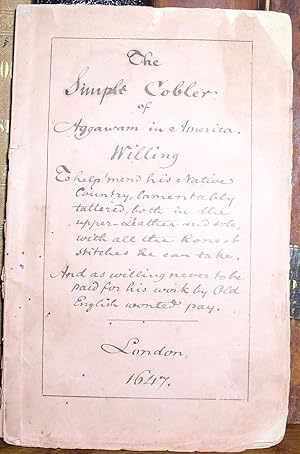 The
Simple Cobler
of
Aggawam in America.
Willing
To help 'mend his Native
Country, lamentably
tattered, both in the
upper-Leather and sole
with all the honest
stitches he can take.
And as willing never to be
paid for his work by Old
English wonted pay.
London,
1647.